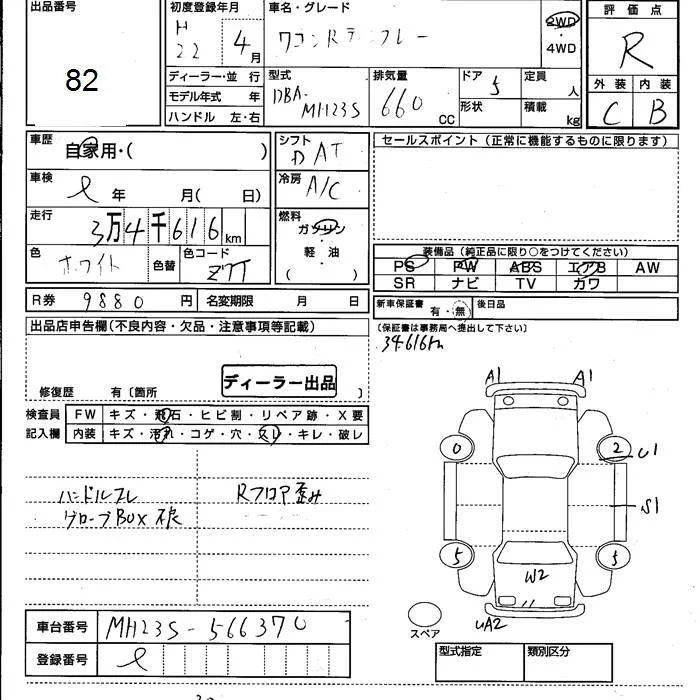 出品番号
82
初度登録年月
H 22 4月
車名・グレード
ワゴンRテンフレー
2WD
・
4WD
評価点
R
外装 内装
C B
ディーラー・並 行
モデル年式 年
ハンドル 左・右
型式
DBA-
MH23S
排気量
660 CC
ドア 5
形状
定員 人
積載 kg
車歴
自家用・( )
車検
年 月( 日)
走行
3万4千616km
色
ホワイト
色替
色コード
Z7T
シフト
DAT
冷房
A/C
燃料
ガソリン
軽 油
( )
セールスポイント (正常に機能するものに限ります)
装備品 (純正品に限り○をつけてください)
PS PW ABS エアB AW
SR ナビ TV カワ
R券 9880 円 名変期限 月 日
新車保証書 有・無 後日品
(保証書は事務局へ提出して下さい)
34616km
出品店申告欄(不良内容・欠品・注意事項等記載)
ディーラー出品
修復歴 有〔箇所 〕
検査員
記入欄
FW キズ・飛石・ヒビ割・リペア跡・X要
内装 キズ・汚れ・コゲ・穴・スレ・キレ・破レ
ハンドルスレ
グローブBOX不良
Rフロア歪み
A1 A1
0 2 U1
S1
5 5
W2
UA2
スペア
車台番号 MH23S-566370
登録番号
型式指定 類別区分